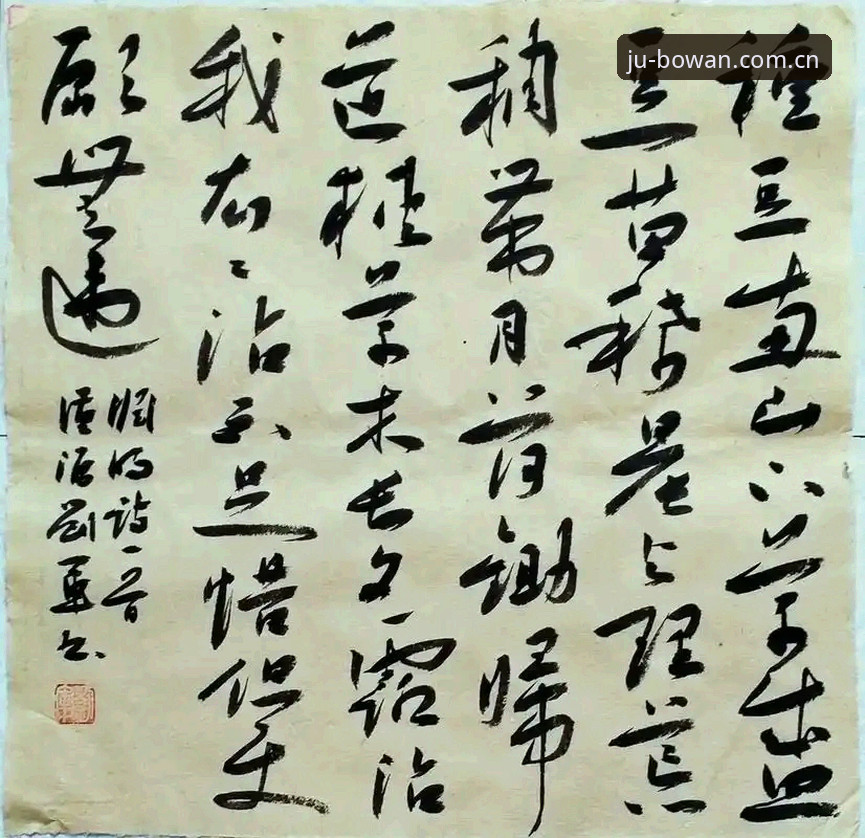 ju-bowan.com.cn
種豆南山下草盛
豆苗稀晨興理荒
穢帶月荷鋤歸
道狹草木長夕露沾
我衣々沾不足惜但使
願無違
淵明詩一首
書